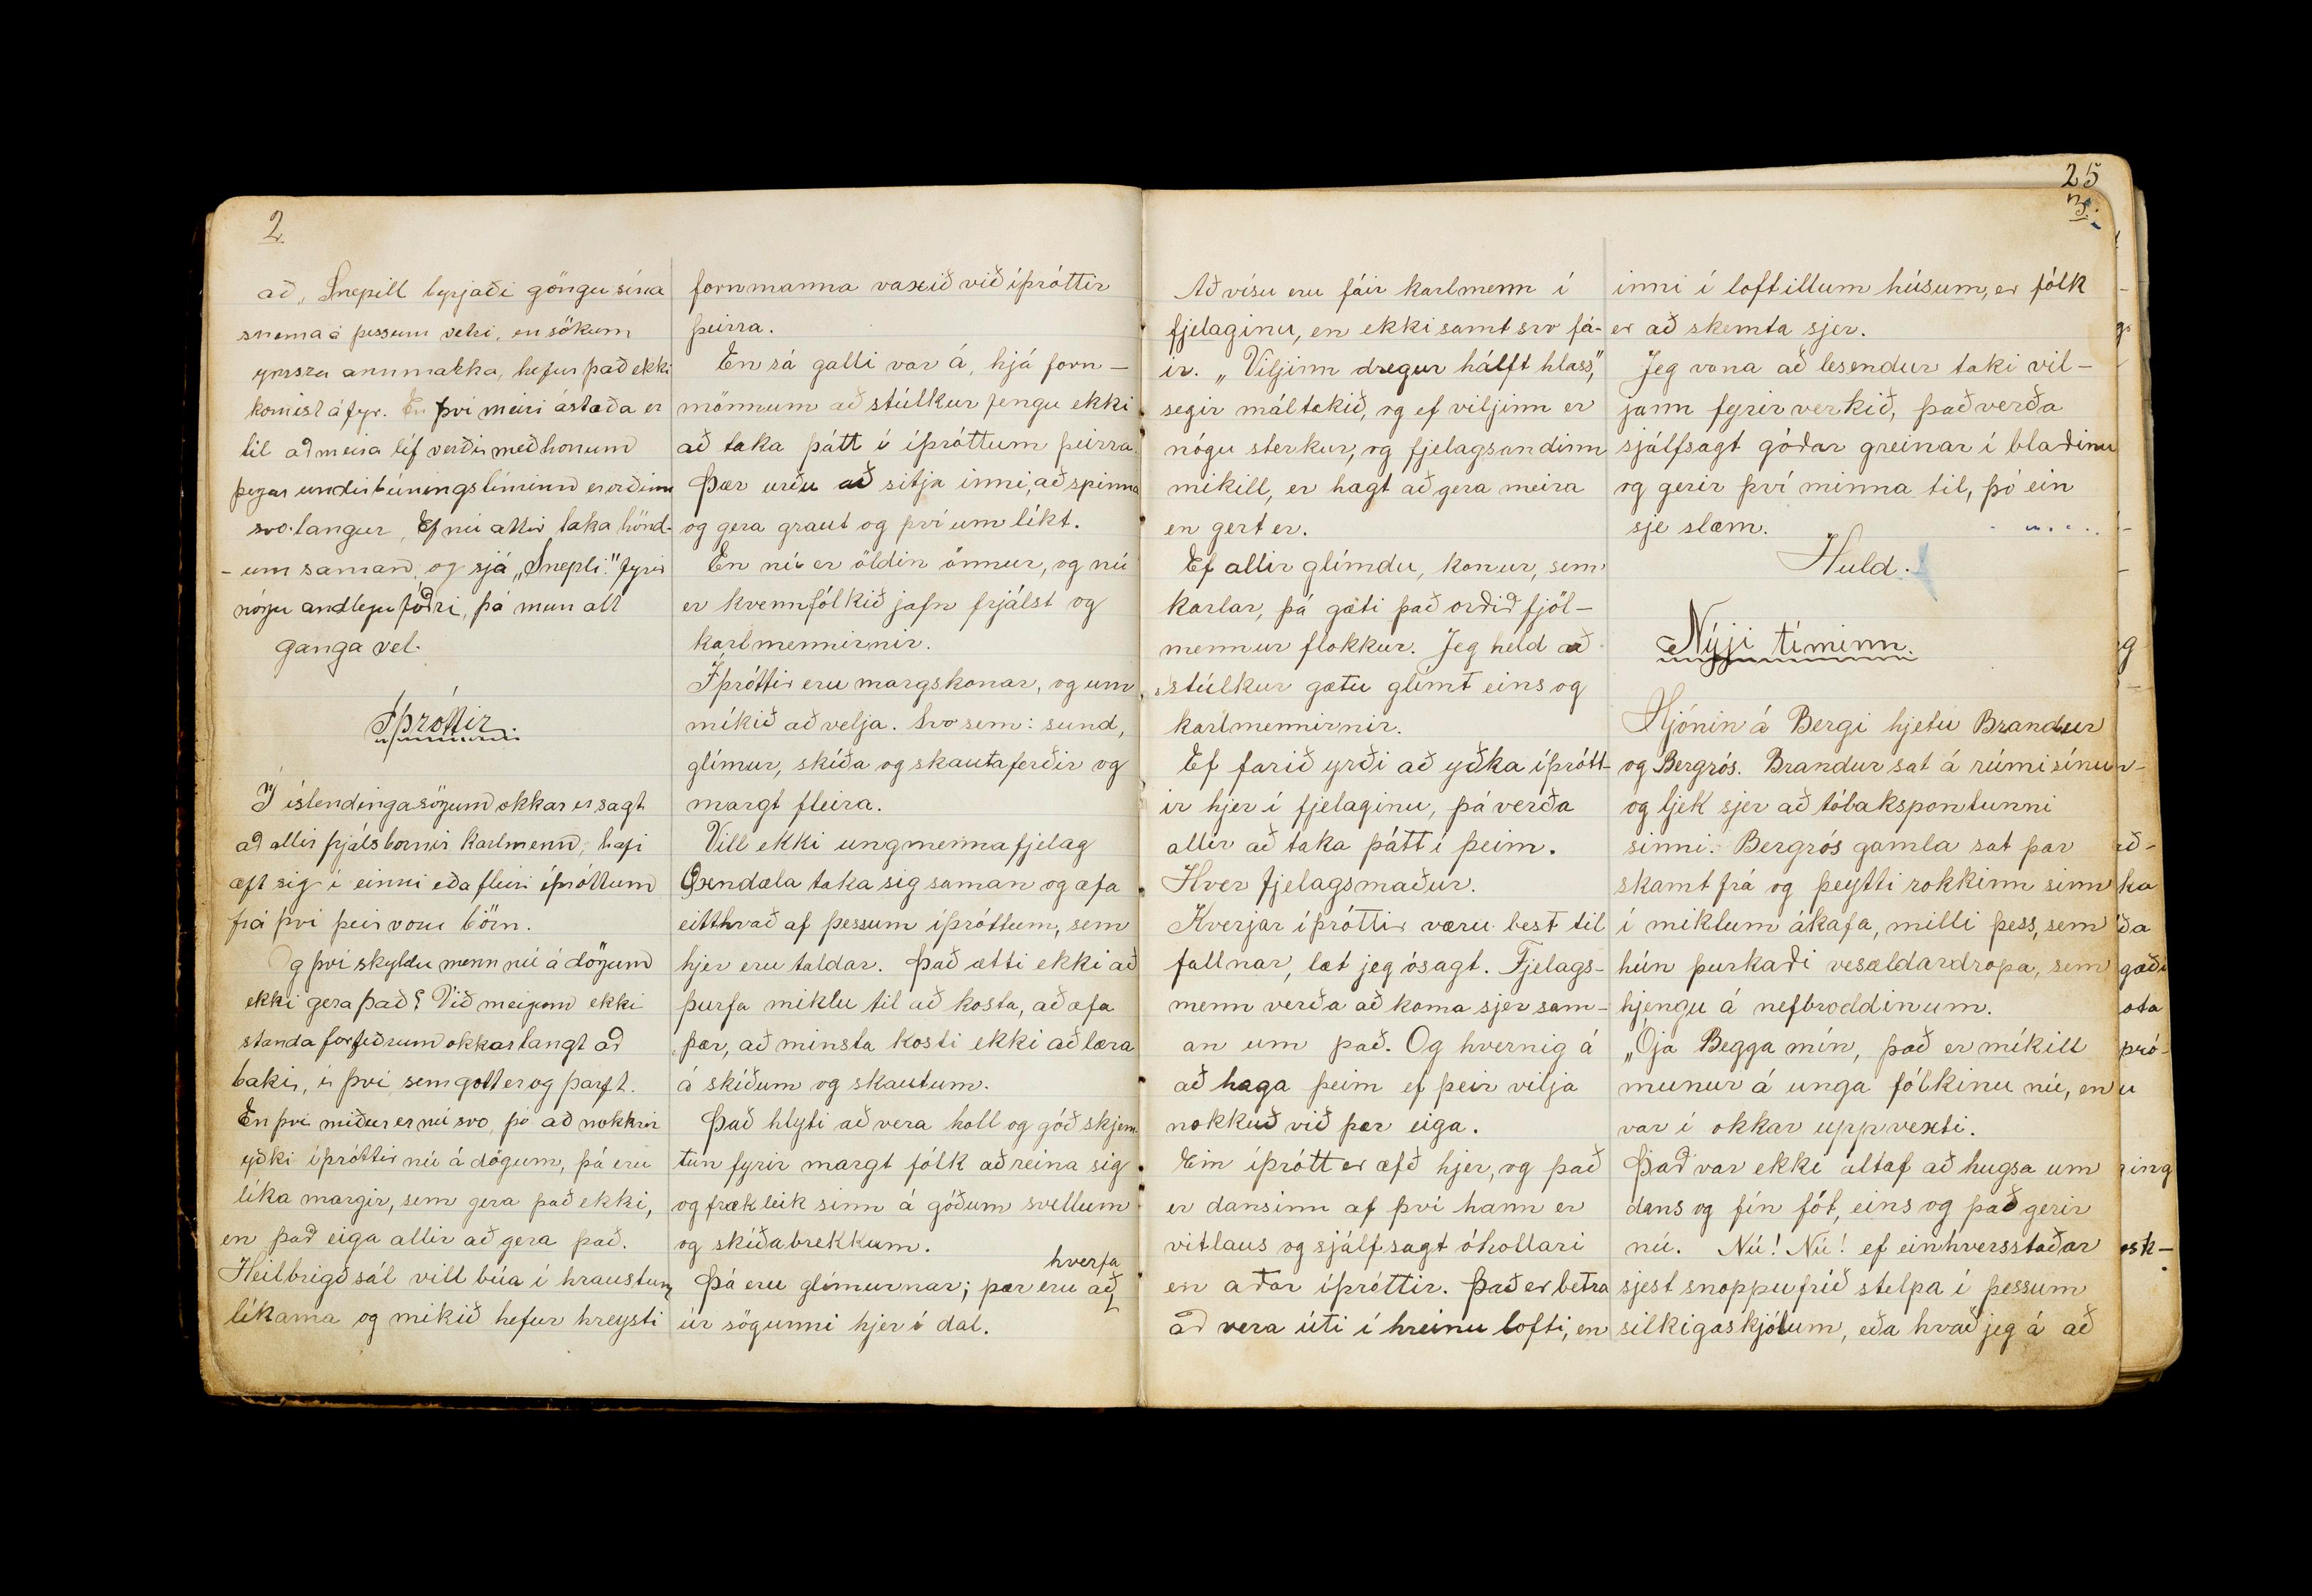 2.
að, Snepill byrjaði göngu sína
snema á þessum vetri, en sökum
ymsra annmarka, hefur það ekki
komist á fyr. En því meiri ástæða er
til að meira líf verði með honum
þegar undirbúningstíminn er orðinn
svo langur, Ef nú allir taka hönd-
-um saman og sjá „Snepli" fyrir
nógu andlegu fóðri, þá mun alt
ganga vel.
Íþróttir.
Í íslendingasögum okkar er sagt
að allir frjálsbornir karlmenn, hafi
æft sig í einni eða fleiri íþróttum
frá því þeir voru börn.
Og því skyldu menn nú á dögum
ekki gera það? Við meigum ekki
standa forfeðrum okkar langt að
baki, í því sem gott er og þarft.
En því miður er nú svo, þó að nokkrir
yðki íþróttir nú á dögum, þá eru
líka margir, sem gera það ekki,
en það eiga allir að gera það.
Heilbrigð sál vill búa í hraustum
líkama og mikið hefur hreysti
fornmanna vaxið við íþróttir
þeirra.
En sá galli var á, hjá forn-
mönnum að stúlkur fengu ekki
að taka þátt í íþróttum þeirra.
Þær urðu að sitja inni, að spinna
og gera graut og því um líkt.
En nú er öldin önnur, og nú
er kvennfólkið jafn frjálst og
karlmennirnir.
Íþróttir eru margskonar, og um
mikið að velja. Svo sem: sund,
glímur, skíða og skautaferðir og
margt fleira.
Vill ekki ungmennafjelag
Öxndæla taka sig saman og æfa
eitthvað af þessum íþróttum, sem
hjer eru taldar. Það ætti ekki að
þurfa miklu til að kosta, að æfa
þær, að minsta kosti ekki að læra
á skíðum og skautum.
Það hlyti að vera holl og góð skjem-
tun fyrir margt fólk að reina sig
og fræk leik sinn á góðum svellum
og skíðabrekkum.
hverfa
Þá eru glímurnar; þær eru að
úr sögunni hjer í dal.
25
3.
Að vísu eru fáir karlmenn í
fjelaginu, en ekki samt svo fá-
ir. „Viljinn dregur hálft hlass",
segir máltakið, og ef viljinn er
nógu sterkur, og fjelagsandinn
mikill, er hægt að gera meira
en gert er.
Ef allir glímdu, konur, sem
karlar, þá gæti það orðið fjöl-
mennur flokkur. Jeg held að
stúlkur gætu glímt eins og
karlmennirnir.
Ef farið yrði að yðka íþrótt-
ir hjer í fjelaginu, þá verða
allir að taka þátt í þeim.
Hver fjelagsmaður.
Hverjar íþróttir væru best til
fallnar, læt jeg ósagt. Fjelags-
menn verða að koma sjer sam-
an um það. Og hvernig á
að haga þeim ef þeir vilja
nokkuð við þær eiga.
Ein íþrótt er æfð hjer, og það
er dansinn af því hann er
vitlaus og sjálfsagt óhollari
en aðar íþróttir. Það er betra
að vera úti í hreinu lofti, en
inni í loftillum húsum, er fólk
er að skemta sjer.
Jeg vona að lesendur taki vil-
jann fyrir verkið, það verða
sjálfsagt góðar greinar í blaðinu
og gerir því minna til, þó ein
sje slæm.
Huld.
Nýji tíminn.
Hjónin á Bergi hjetu Brandur
og Bergrós. Brandur sat á rúmi sínu
og ljek sjer að tóbakspontunni
sinni. Bergrós gamla sat þar
skamt frá og þeytti rokkinn sinn
í miklum ákafa, milli þess, sem
hún þurkaði vesældardropa, sem
hjengu á nefbroddinum.
„Oja Begga mín, það er mikill
munur á unga fólkinu nú, en
var í okkar uppvexti.
Það var ekki altaf að hugsa um
dans og fín föt, eins og það gerir
nú. Nú! Nú! ef einhversstaðar
sjest snoppufríð stelpa í þessum
silkigaskjólum, eða hvað jeg á að